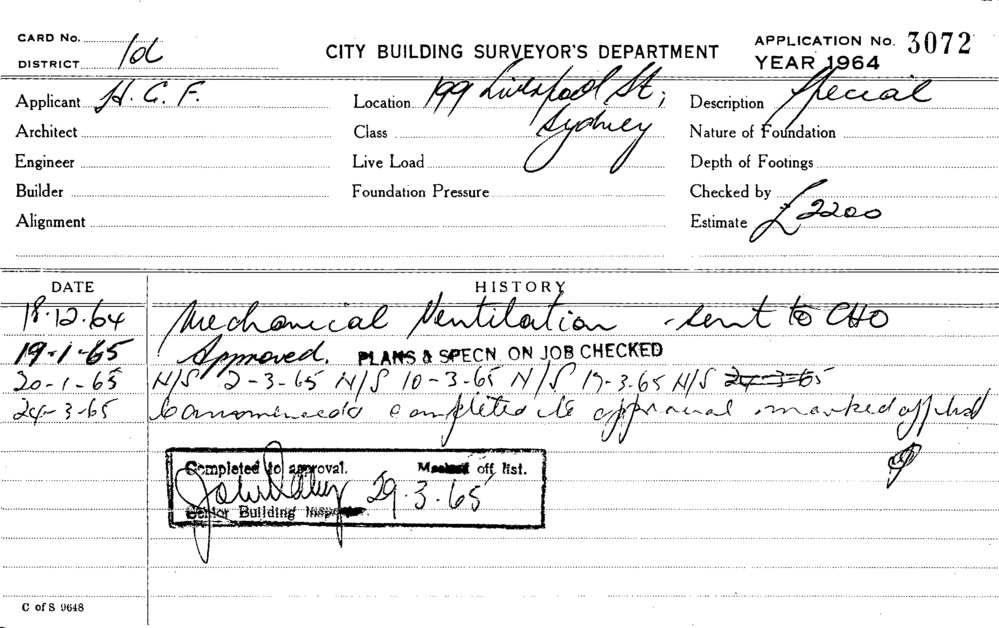 CARD No.
DISTRICT 1d
CITY BUILDING SURVEYOR'S DEPARTMENT
APPLICATION No. 3072
YEAR 1964
Applicant H.C.F.
Location 199 Liverpool St; Sydney
Description Special
Architect
Class
Nature of Foundation
Engineer
Live Load
Depth of Footings
Builder
Foundation Pressure
Checked by
Alignment
Estimate £2200
DATE HISTORY
18.12.64 Mechanical Ventilation - sent to CHO
19-1-65 Approved. PLANS & SPECN. ON JOB CHECKED
20-1-65 N/S 2-3-65 N/S 10-3-65 N/S 17-3.65 N/S 24-3-65
24-3-65 completed to approval marked off list
Completed to approval. Marked off list.
29.3.65
Senior Building Inspector.
C of S 9648